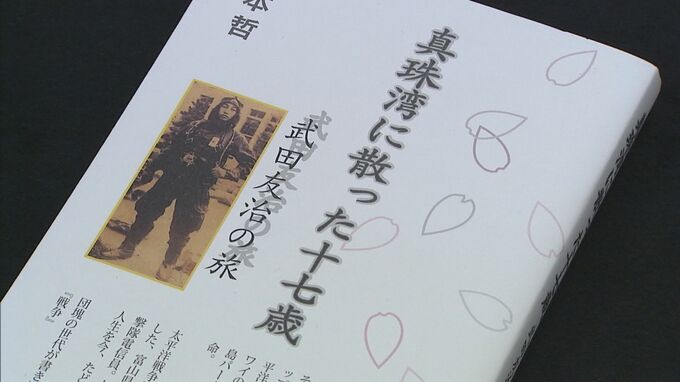 真珠湾に散った十七歳
武田友治の旅
本 哲
ップ
平洋
ワイの
島。パー
命。
太平洋戦争
した、富山県
撃隊電信員。
人生を今、たど
団塊の世代が書き
『戦争』